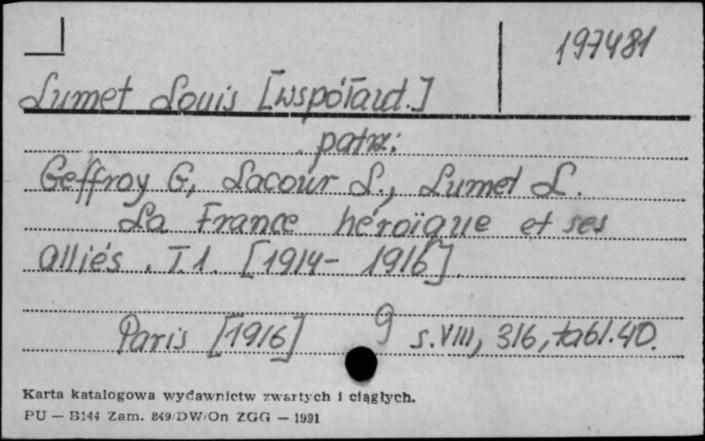 197481
Lumet Louis [współaut.]
patrz:
Geffroy G., Lacour L., Lumet L.
La France héroïque et ses
alliés. T.1. [1914- 1916].
Paris [1916] 9 s.VIII, 316, tabl.40.
Karta katalogowa wydawnictw zwartych i ciągłych.
PU — B144 Zam. 849/DW/On ZGG — 1991